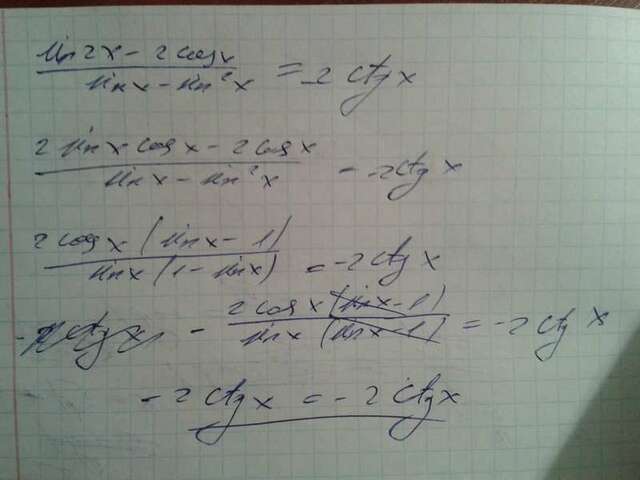 (sin2x - 2cosx)/(sinx - sin²x) = -2ctgx
(2sinx·cosx - 2cosx)/(sinx - sin²x) = -2ctgx
(2cosx(sinx - 1))/(sinx(1 - sinx)) = -2ctgx
- (2cosx(sinx-1))/(sinx(sinx-1)) = -2ctgx
-2ctgx = -2ctgx